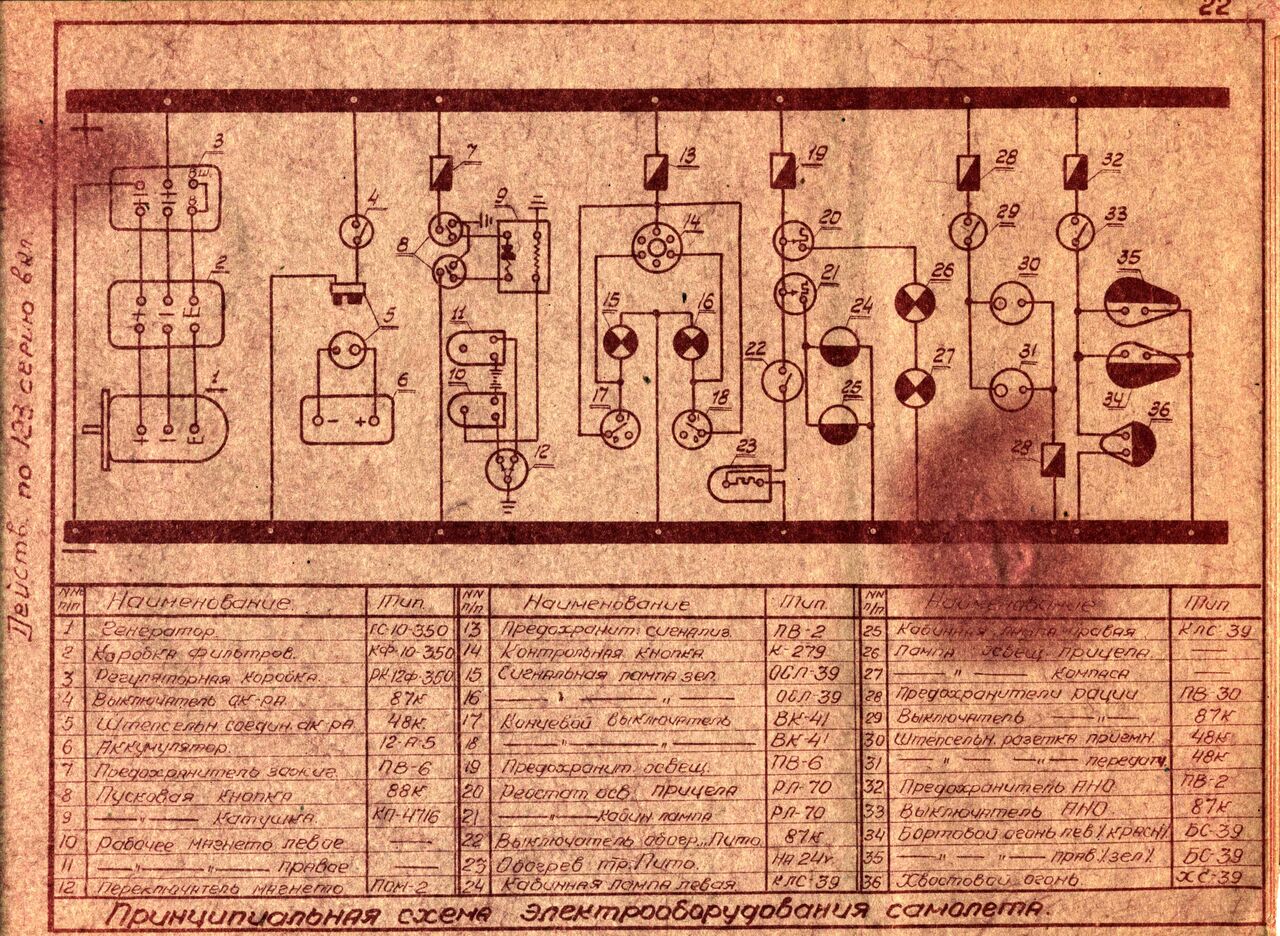 22
Действ. по 123 серию вкл.
+
3
В Ш
2
+ I E
1
+ I E
4
5
6
- +
7
8
9
11
10
12
13
14
15
16
17
18
19
20
21
22
23
24
25
26
27
28
29
30
31
28
32
33
35
34
36
—
NN п/п Наименование Тип NN п/п Наименование Тип NN п/п Наименование Тип
1 Генератор ГС-10-350 13 Предохранит. сигнализ. ПВ-2 25 Кабинная лампа правая КЛС-39
2 Коробка фильтров. КФ-10-350 14 Контрольная кнопка К-279 26 Лампа освещ прицела —
3 Регуляторная коробка. РК-12Ф-350 15 Сигнальная лампа зел. ОСЛ-39 27 — " — Компаса —
4 Выключатель ак-ра 87к 16 — " — " — ОСЛ-39 28 Предохранители рации ПВ-30
5 Штепсельн соедин ак-ра 48к 17 Концевой выключатель ВК-41 29 Выключатель — " — 87к
6 Аккумулятор. 12-А-5 18 — " — " — ВК-41 30 Штепсельн. разетка приемн. 48к
7 Предохранитель зажиг. ПВ-6 19 Предохранит. освещ. ПВ-6 31 — " — " — передатч. 48к
8 Пусковая кнопка 88к 20 Реостат осв. прицела РЛ-70 32 Предохранитель АНО ПВ-2
9 — " — Катушка КП-4716 21 — " — Кабин лампа РЛ-70 33 Выключатель АНО 87к
10 Рабочее магнето левое — 22 Выключатель обогр. Пито. 87к 34 Бортовой огонь лев (красн) БС-39
11 — " — правое — 23 Обогрев тр. Пито. На 24v 35 — " — " — прав (зел) БС-39
12 Переключатель магнето ПСМ-2 24 Кабинная лампа левая. КЛС-39 36 Хвостовой огонь. ХС-39
Принципиальная схема электрооборудования самолета.